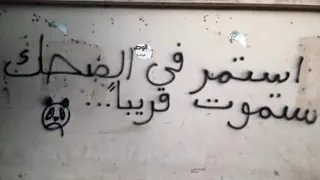 استمر في الضحك
ستموت قريباً...